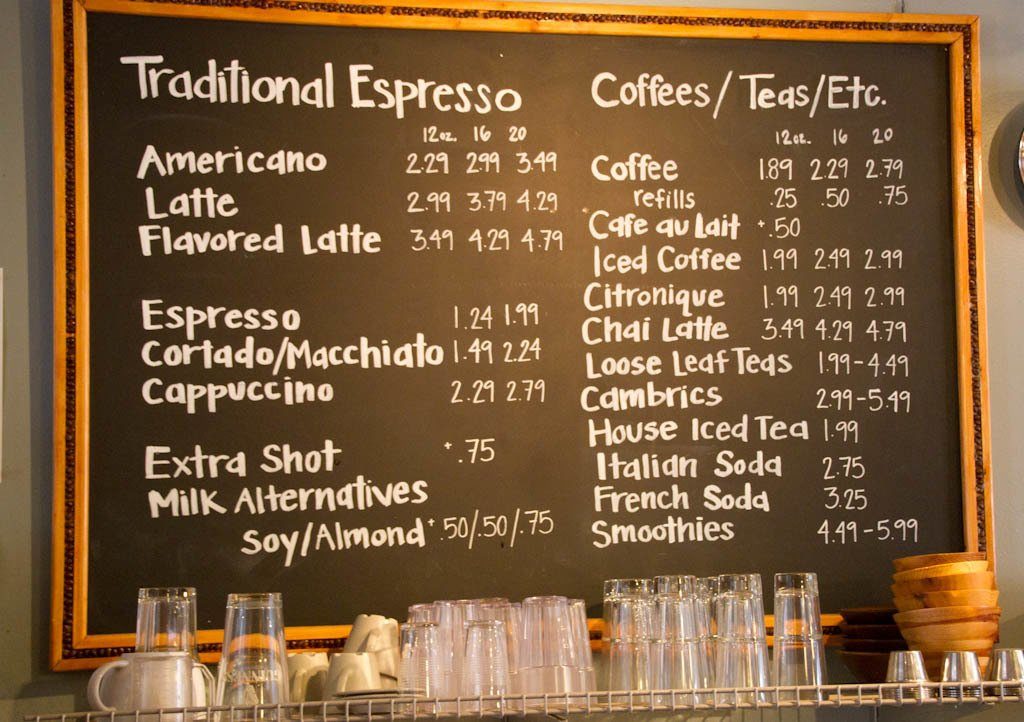 Traditional Espresso
12oz. 16 20
Americano 2.29 2.99 3.49
Latte 2.99 3.79 4.29
Flavored Latte 3.49 4.29 4.79
Espresso 1.24 1.99
Cortado/Macchiato 1.49 2.24
Cappuccino 2.29 2.79
Extra Shot +.75
Milk Alternatives
Soy/Almond +.50/.50/.75
Coffees/Teas/Etc.
12oz. 16 20
Coffee 1.89 2.29 2.79
refills .25 .50 .75
Cafe au Lait +.50
Iced Coffee 1.99 2.49 2.99
Citronique 1.99 2.49 2.99
Chai Latte 3.49 4.29 4.79
Loose Leaf Teas 1.99-4.49
Cambrics 2.99-5.49
House Iced Tea 1.99
Italian Soda 2.75
French Soda 3.25
Smoothies 4.49-5.99